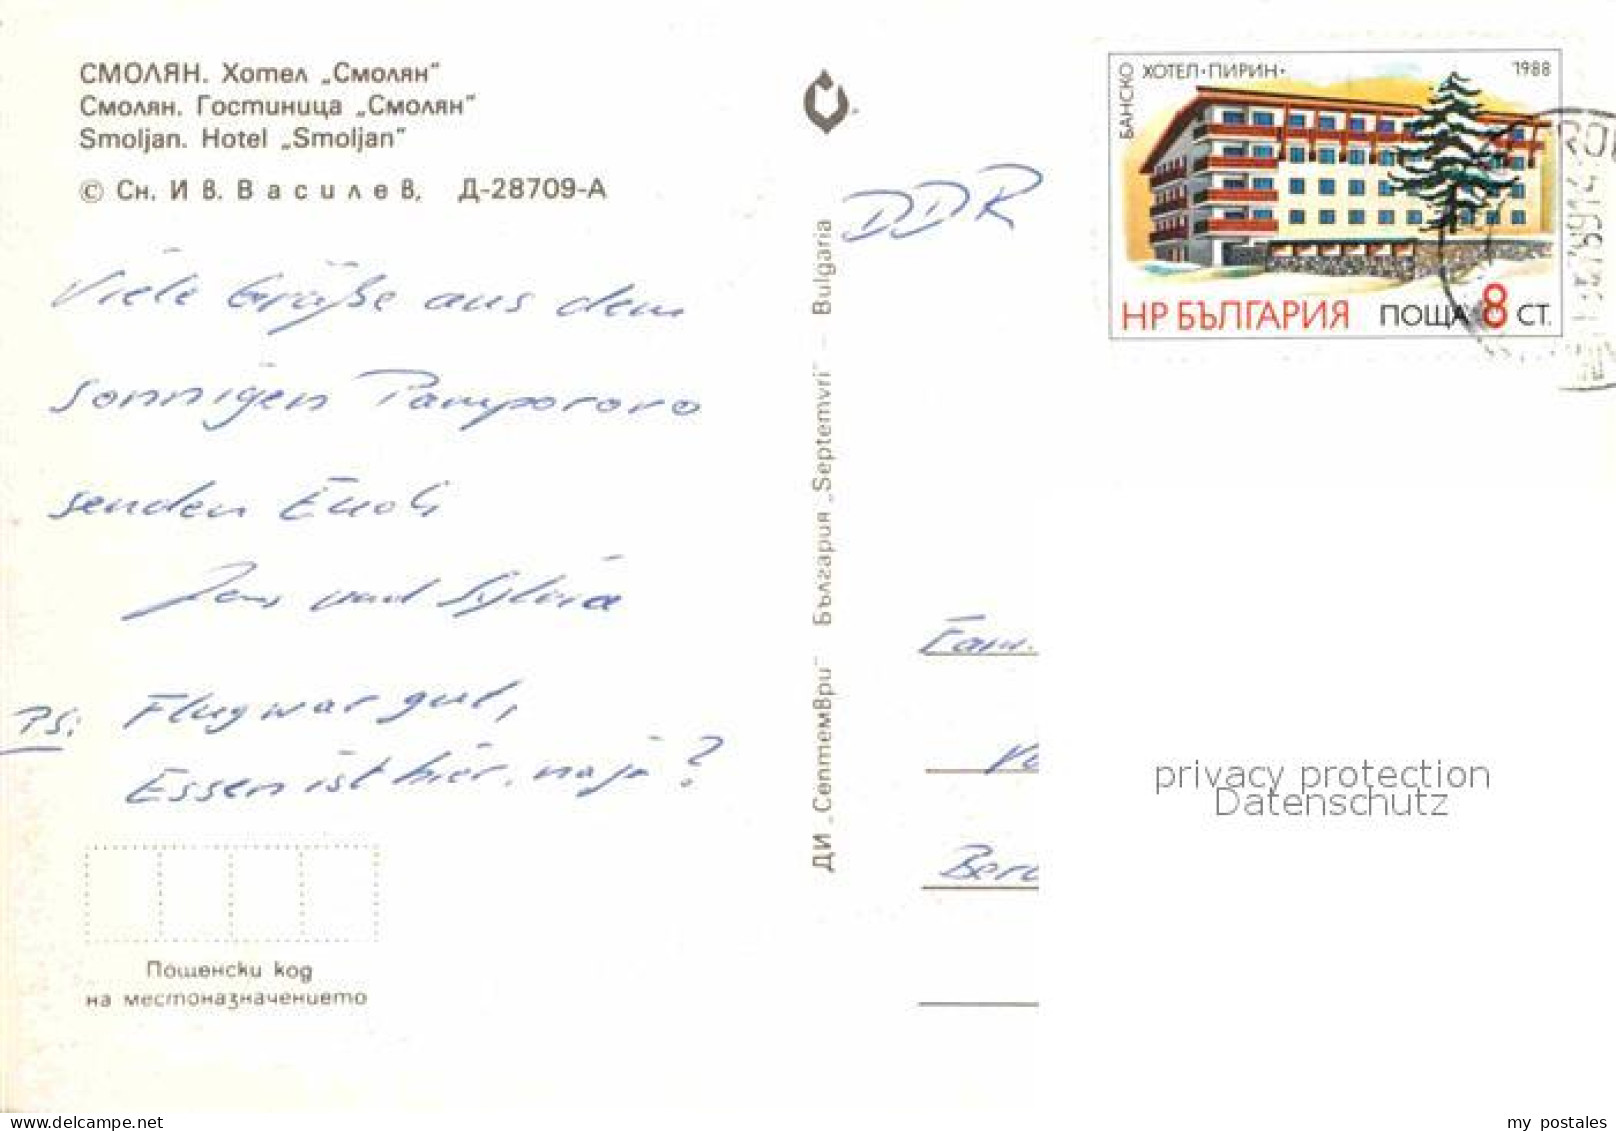 СМОЛЯН. Хотел „Смолян“
Смолян. Гостиница „Смолян“
Smoljan. Hotel „Smoljan“
© Сн. Ив. Василев, Д-28709-А
Viele Grüße aus dem
sonnigen Pamporovo
senden Euch
Jens und Sylvia
PS: Flug war gut,
Essen ist hier, naja?
Пощенски код
на местоназначението
ДИ „Септември“ България „Septemvri“ – Bulgaria
DDR
БАНСКО
ХОТЕЛ·ПИРИН·
1988
НР БЪЛГАРИЯ ПОЩА 8 СТ.
Fam.
privacy protection
Datenschutz
www.delcampe.net
my_postales